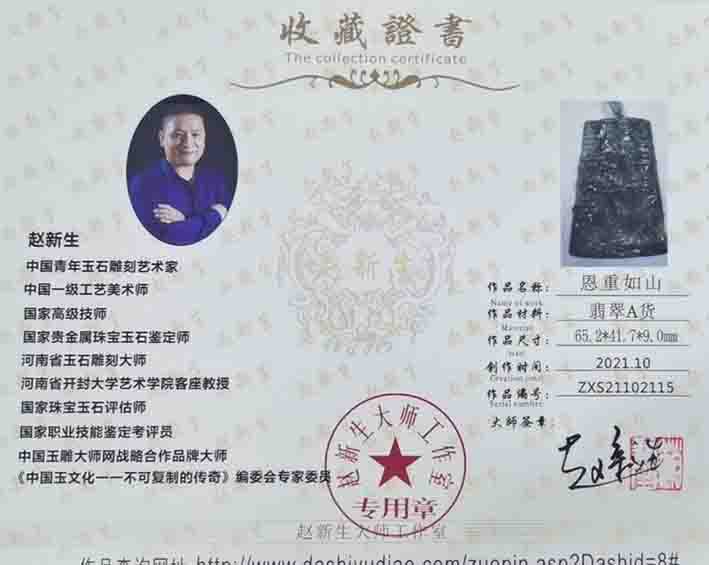 收藏證書
The collection certificate
赵新生
中国青年玉石雕刻艺术家
中国一级工艺美术师
国家高级技师
国家贵金属珠宝玉石鉴定师
河南省玉石雕刻大师
河南省开封大学艺术学院客座教授
国家珠宝玉石评估师
国家职业技能鉴定考评员
中国玉雕大师网战略合作品牌大师
《中国玉文化一一不可复制的传奇》编委会专家委员
作品名称: 恩重如山
Name of work
作品材料: 翡翠A货
Material
作品尺寸: 65.2*41.7*9.0mm
创作时间: 2021.10
Creation time
作品编号: ZXS21102115
Serial number
大师签章:
赵新生
赵新生大师工作室
专用章
赵新生大师工作室
作品查询网址 http://www.dashiyudiao.com/zuopin.asp?Dashid=8#